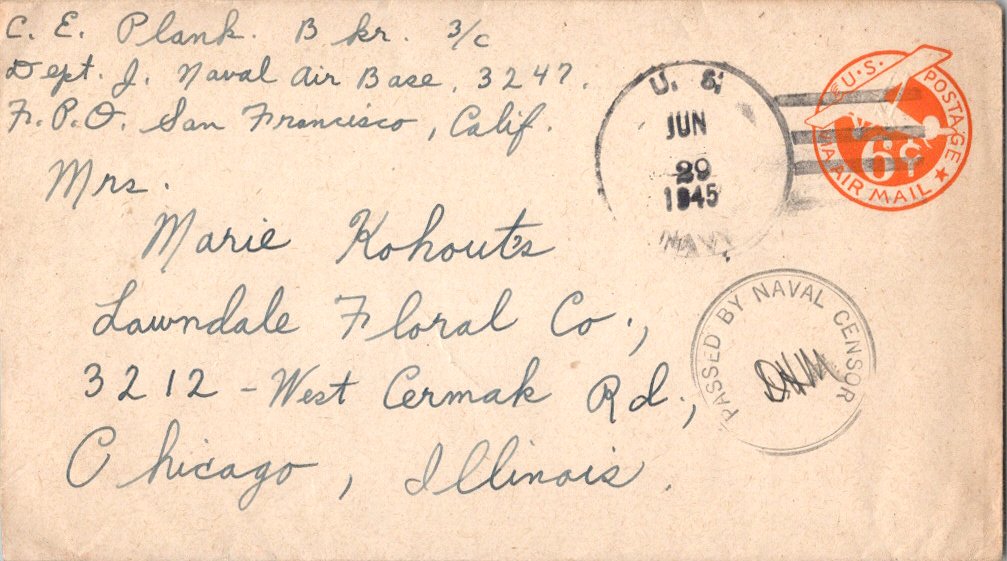 C. E. Plank. B kr. 3/c
Dept. J. Naval Air Base, 3247.
F.P.O. San Francisco, Calif.
Mrs.
Marie Kohout's
Lawndale Floral Co.,
3212 - West Cermak Rd.,
Chicago, Illinois.
U. S.
JUN
29
1945
NAVY
U.S. POSTAGE
6¢
VIA AIR MAIL
PASSED BY NAVAL CENSOR